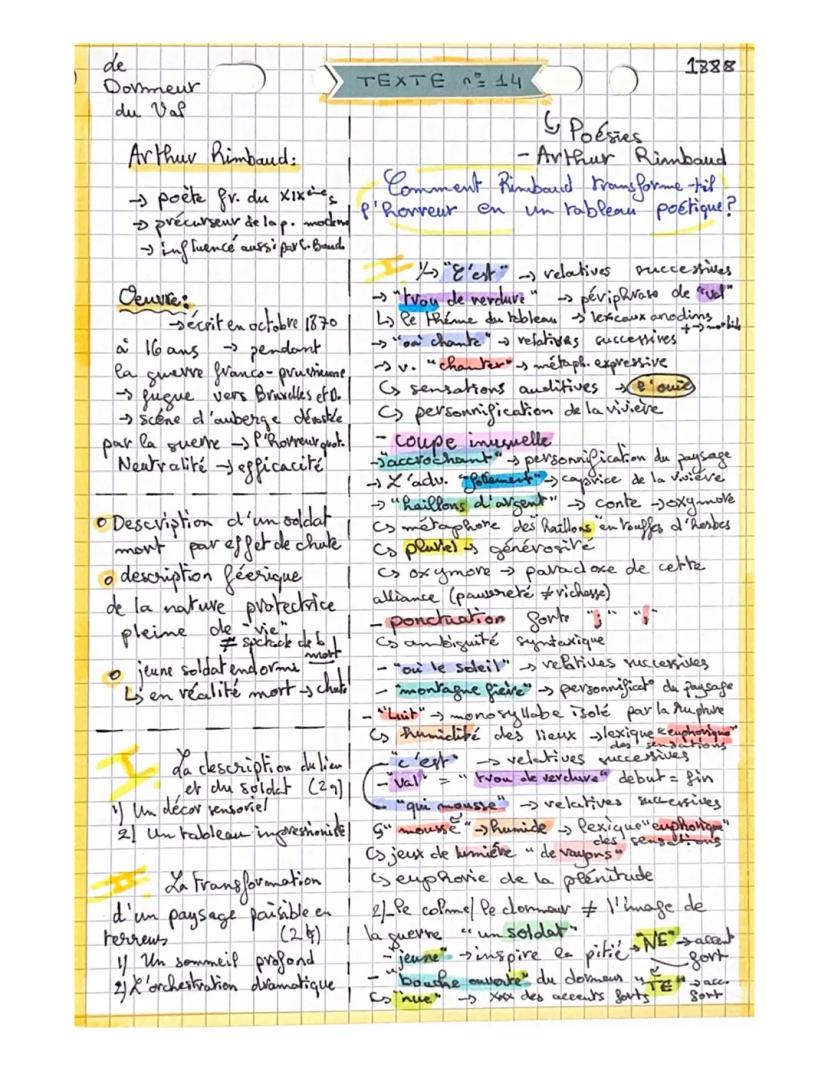 de
Dormeur
du Val
TEXTE n° 14
1888
↳ Poésies
- Arthur Rimbaud
Comment Rimbaud transforme-t-il
l'horreur en un tableau poétique?
Arthur Rimbaud:
→ poète fr. du XIXèmes
→ précurseur de la p. moderne
→ influencé aussi par C. Baud.
Oeuvre:
→ écrit en octobre 1870
à 16 ans → pendant
la guerre franco-prussienne
→ fugue vers Bruxelles et D.
→ scène d'auberge dévastée
par la guerre → l'horreur quot.
Neutralité → efficacité
o Description d'un soldat
mort par effet de chute
o description féerique
de la nature protectrice
pleine de "vie"
≠ spectacle de la
mort
o jeune soldat endormi
↳ en réalité mort → chute
I La description du lieu
et du soldat (2q)
1) Un décor sensoriel
2) Un tableau impressioniste
II La transformation
d'un paysage paisible en
terreurs (2t)
1) Un sommeil profond
2) L'orchestration dramatique
I 1/→ "C'est" → relatives successives
→ "trou de verdure" → périphrase de "val"
↳ le thème du tableau → lexicaux anodins
→ "où chante" → relatives successives
→ v. "chanter" → métaph. expressive
↳ sensations auditives → l'ouïe
↳ personnification de la rivière
- coupe inusuelle
→ "accrochant" → personnification du paysage
→ L'adv. "follement" → caprice de la rivière
→ "haillons d'argent" → conte → oxymore
↳ métaphore des haillons en touffes d'herbes
↳ pluriel → générosité
↳ oxymore → paradoxe de cette
alliance (pauvreté ≠ richesse)
- ponctuation forte ";" ";"
↳ ambiguïté syntaxique
- "où le soleil" → relatives successives
- "montagne fière" → personnificat° du paysage
- "Luit" → monosyllabe isolé par la rupture
↳ humidité des lieux → lexique "euphorique"
des sensations
- "c'est" → relatives successives
- "val" = "trou de verdure" début = fin
- "qui mousse" → relatives successives
↳ "mousse" → humide → lexique "euphorique"
des sensations
↳ jeux de lumière "de rayons"
↳ euphorie de la plénitude
2/ Le calme/le dormeur ≠ l'image de
la guerre "un soldat"
- "jeune" → inspire la pitié → "NE" → accent
fort
- "bouche ouverte" du dormeur "TE" → acc.
fort
↳ "nue" → des accents forts